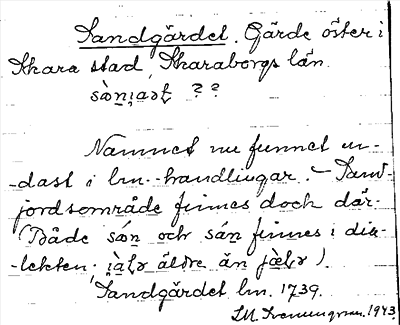 Sandgärdet. Gärde öster i
Skara stad, Skaraborgs län.
??
Namnet nu funnet en-
-dast i lm.-handlingar. - Sand-
jordsområde finnes doch där.
(Både són och sán finnes i dia-
-lekten; äldre än ).
Sandgärdet lm. 1739.
1943